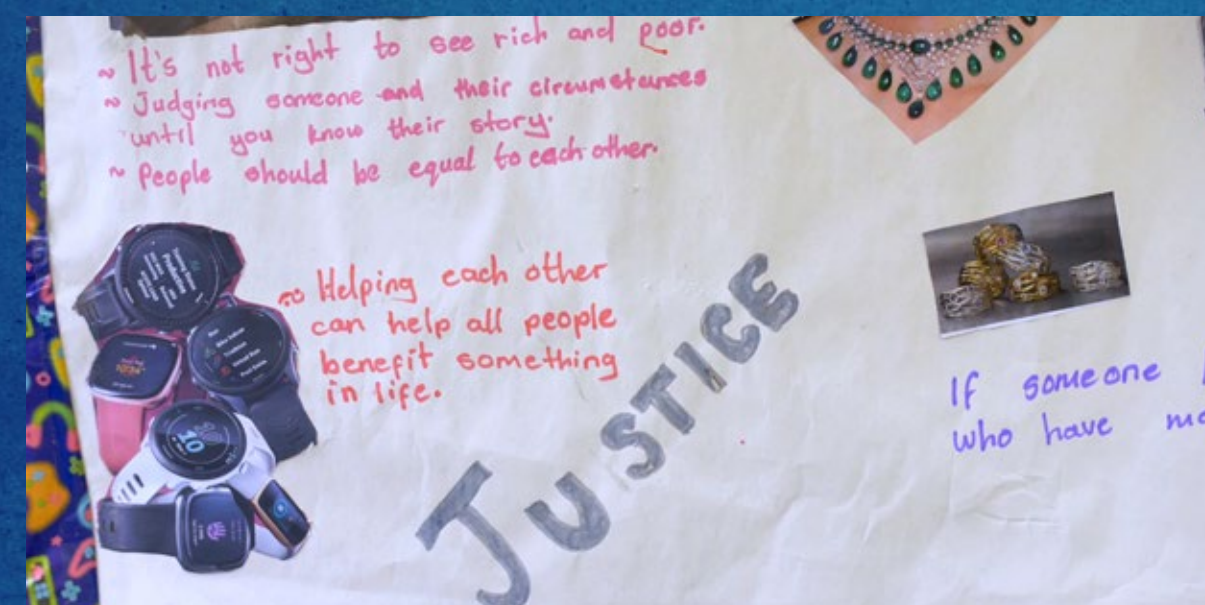 ~ It's not right to see rich and poor.
~ Judging someone and their circumstances
until you know their story.
~ People should be equal to each other.
~ Helping each other
can help all people
benefit something
in life.
JUSTICE
If someone
who have